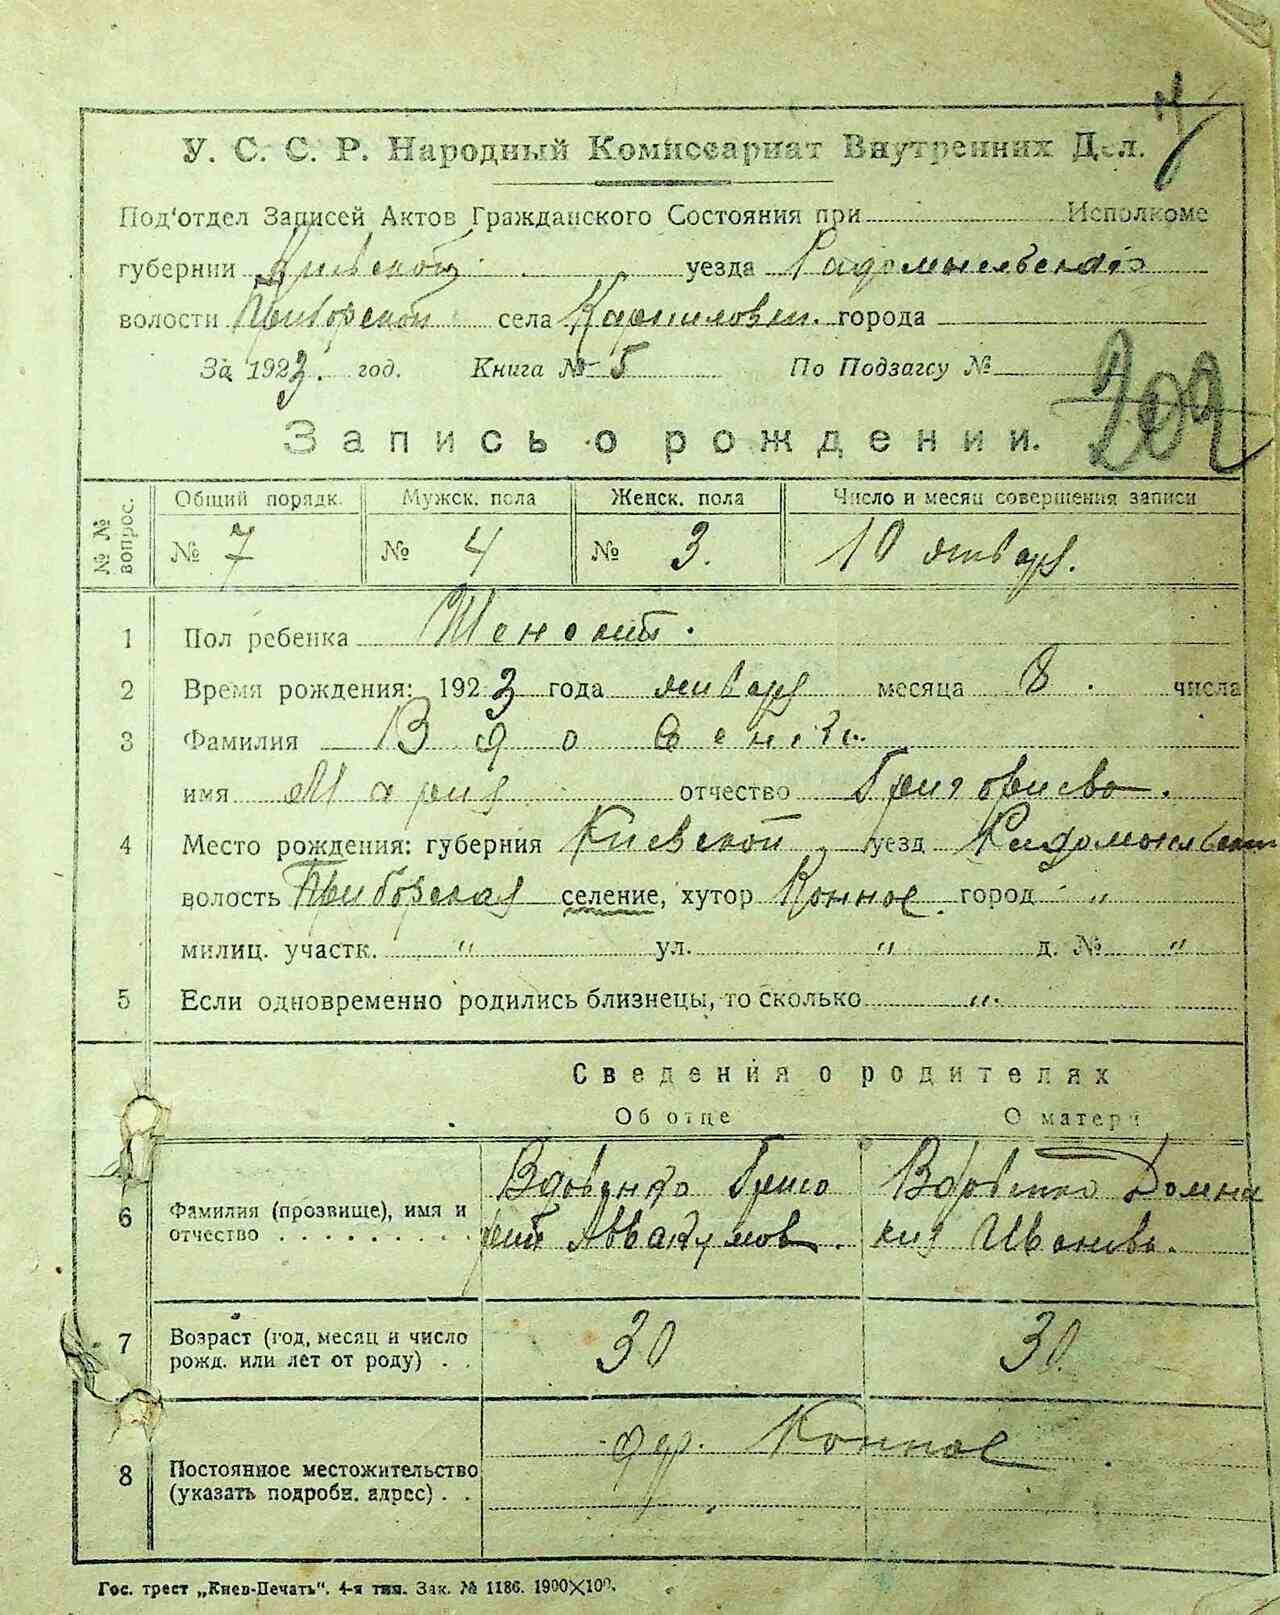 У. С. С. Р. Народный Комиссариат Внутренних Дел.
Под'отдел Записей Актов Гражданского Состояния при Исполкоме
губернии Киевской уезда Радомысльского
волости Приборской села Карпиловки. города
За 1923. год. Книга № 5 По Подзагсу №
202
Запись о рождении.
№ № вопрос. Общий порядк. Мужск. пола Женск. пола Число и месяц совершения записи
№ 7 № 4 № 3. 10 января.
1 Пол ребенка Женский.
2 Время рождения: 1923 года января месяца 8. числа
3 Фамилия Вдовенко
имя Мария отчество Григориева.
4 Место рождения: губерния Киевской уезд Радомысльский
волость Приборская селение, хутор Конное. город "
милиц. участк. " ул. " д. № "
5 Если одновременно родились близнецы, то сколько ".
Сведения о родителях
Об отце О матери
6 Фамилия (прозвище), имя и отчество . . . . . . . . . .
Вдовенко Григо
рий Аввакумов.
Вдовенко Домни
кия Иванова.
7 Возраст (год, месяц и число рожд. или лет от роду) . . 30 30.
8 Постоянное местожительство (указать подробн. адрес) . . дер. Конное.
Гос. трест „Киев-Печать“. 4-я тип. Зак. № 1186. 1900×100.